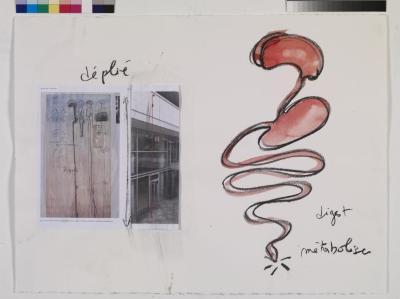 déplié
digest
métabolise